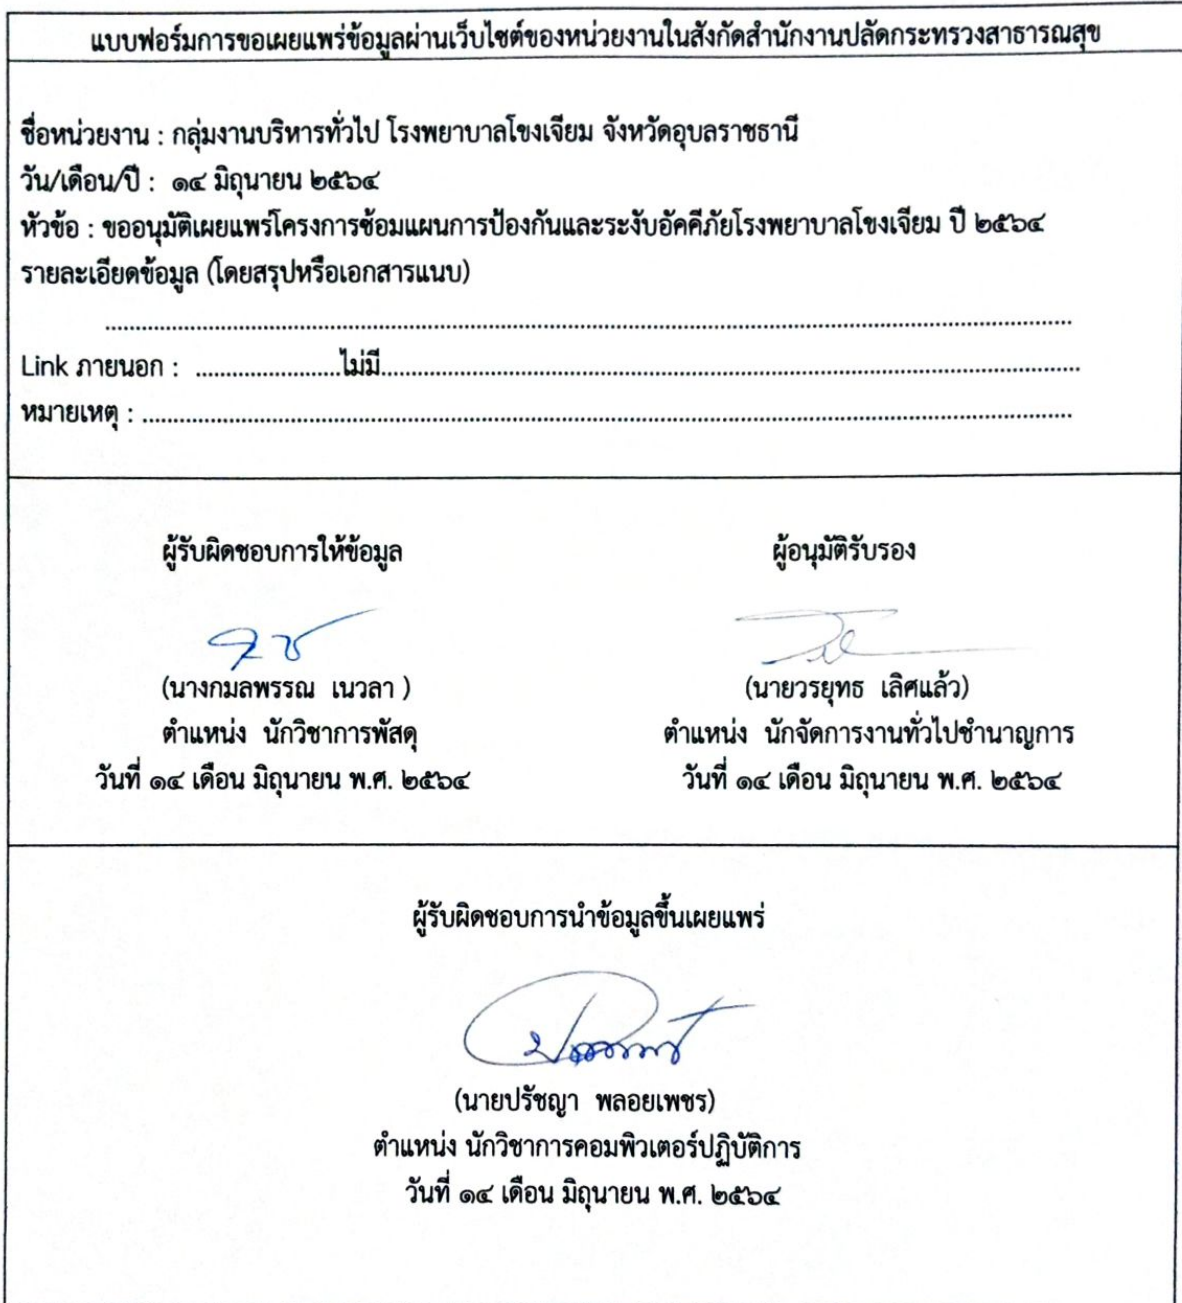 แบบฟอร์มการขอเผยแพร่ข้อมูลผ่านเว็บไซต์ของหน่วยงานในสังกัดสำนักงานปลัดกระทรวงสาธารณสุข
ชื่อหน่วยงาน : กลุ่มงานบริหารทั่วไป โรงพยาบาลโขงเจียม จังหวัดอุบลราชธานี
วัน/เดือน/ปี : ๑๔ มิถุนายน ๒๕๖๔
หัวข้อ : ขออนุมัติเผยแพร่โครงการซ้อมแผนการป้องกันและระงับอัคคีภัยโรงพยาบาลโขงเจียม ปี ๒๕๖๔
รายละเอียดข้อมูล (โดยสรุปหรือเอกสารแนบ)
Link ภายนอก : ........................ไม่มี....................................................................................................................
หมายเหตุ : ..........................................................................................................................................................
ผู้รับผิดชอบการให้ข้อมูล ผู้อนุมัติรับรอง
(นางกมลพรรณ เนวลา ) (นายวรยุทธ เลิศแล้ว)
ตำแหน่ง นักวิชาการพัสดุ ตำแหน่ง นักจัดการงานทั่วไปชำนาญการ
วันที่ ๑๔ เดือน มิถุนายน พ.ศ. ๒๕๖๔ วันที่ ๑๔ เดือน มิถุนายน พ.ศ. ๒๕๖๔
ผู้รับผิดชอบการนำข้อมูลขึ้นเผยแพร่
(นายปรัชญา พลอยเพชร)
ตำแหน่ง นักวิชาการคอมพิวเตอร์ปฏิบัติการ
วันที่ ๑๔ เดือน มิถุนายน พ.ศ. ๒๕๖๔